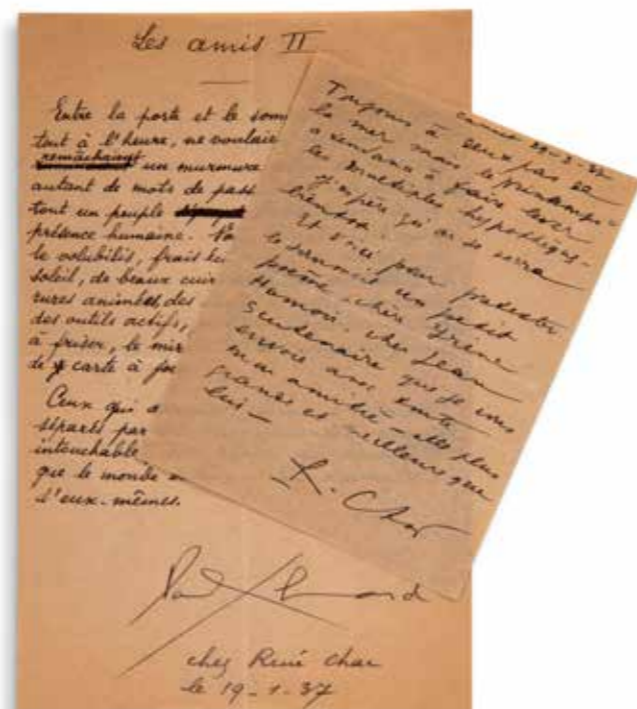 Les amis II
Entre la porte et le som
tout à l'heure, ne voulaie
remâchaient un murmure
autant de mots de pass
tout un peuple
présence humaine.
le volubilis, frais
soleil, de beaux cuir
rures animées, des
des outils actifs,
à friser, le mir
de carte à
Ceux qui
séparés par
intouchable
que le monde
d'eux-mêmes.
Paul Eluard
chez René Char
le 19-1-37
Cannes 29-3-37
Toujours à deux pas de
la mer mais le printemps
a tendance à faire lever
les multiples hypothèques.
J'espère qu'on se verra
bientôt.
Et voici pour
un petit
poème, cher
cher Jean
que je vous
envoie avec toute
mon amitié – plus
grande et meilleure que
lui –
R. Char